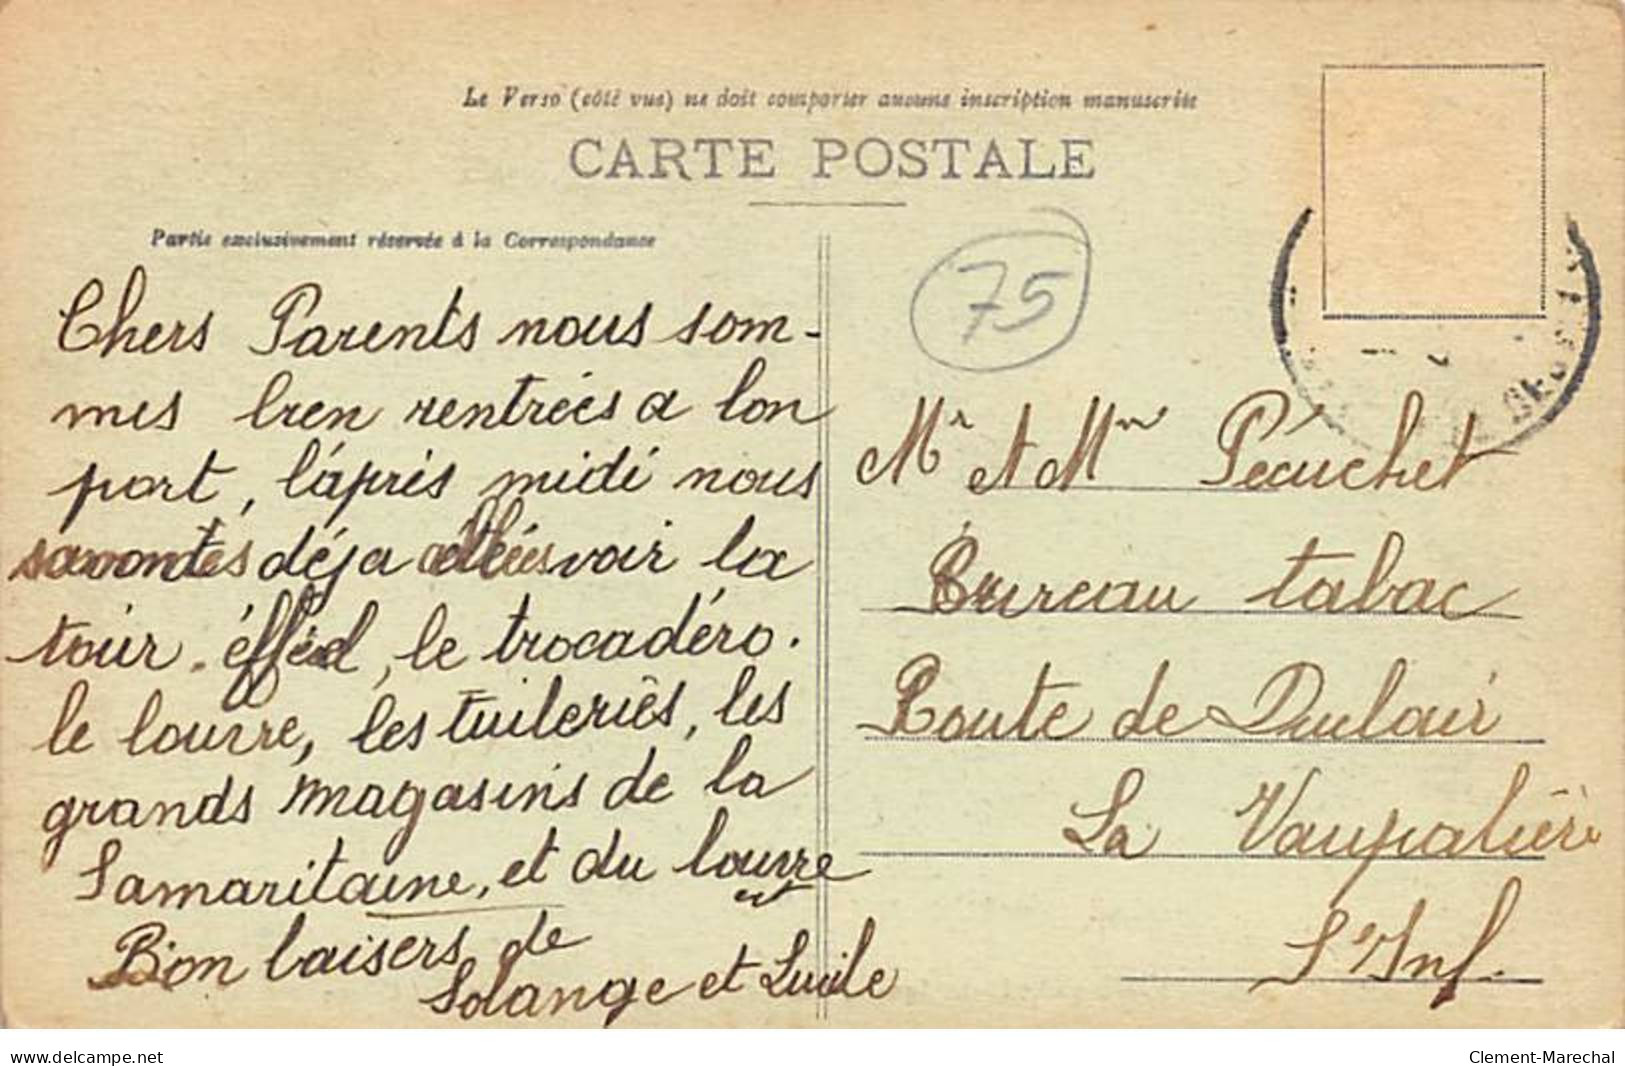 Le Verso (côté vue) ne doit comporter aucune inscription manuscrite
CARTE POSTALE
Partie exclusivement réservée à la Correspondance
75
Chers Parents nous som-
mes bien rentrées a bon
port, l'áprés midi nous
déja allées voir la
tour. éffed, le trocadéro.
le louvre, les tuileries, les
grands magasins de la
Samaritaine, et du louvre
Bon baisers de
Solange et Lucile
Mr et Mm Pécuchet
Bureau tabac
Route de Duclair
La Vaupalière
S. Inf.
www.delcampe.net
Clement-Marechal